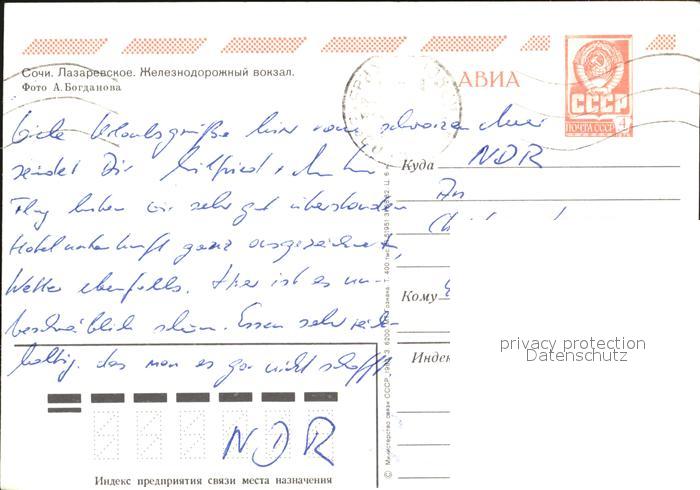 Сочи. Лазаревское. Железнодорожный вокзал.
Фото А.Богданова
АВИА
СССР
ПОЧТА СССР
4
Liebe Urlaubsgrüße hier vom schwarzen Meer
sendet Dir Wilfried +
Flug haben wir sehr gut überstanden
Hotelunterkunft ganz ausgezeichnet,
Wetter ebenfalls. Hier ist es un-
beschreiblich schön. Essen sehr reich-
haltig, das man es gar nicht schafft
Куда
NDR
An
Кому
Индек
privacy protection
Datenschutz
NDR
Индекс предприятия связи места назначения
© Министерство связи СССР